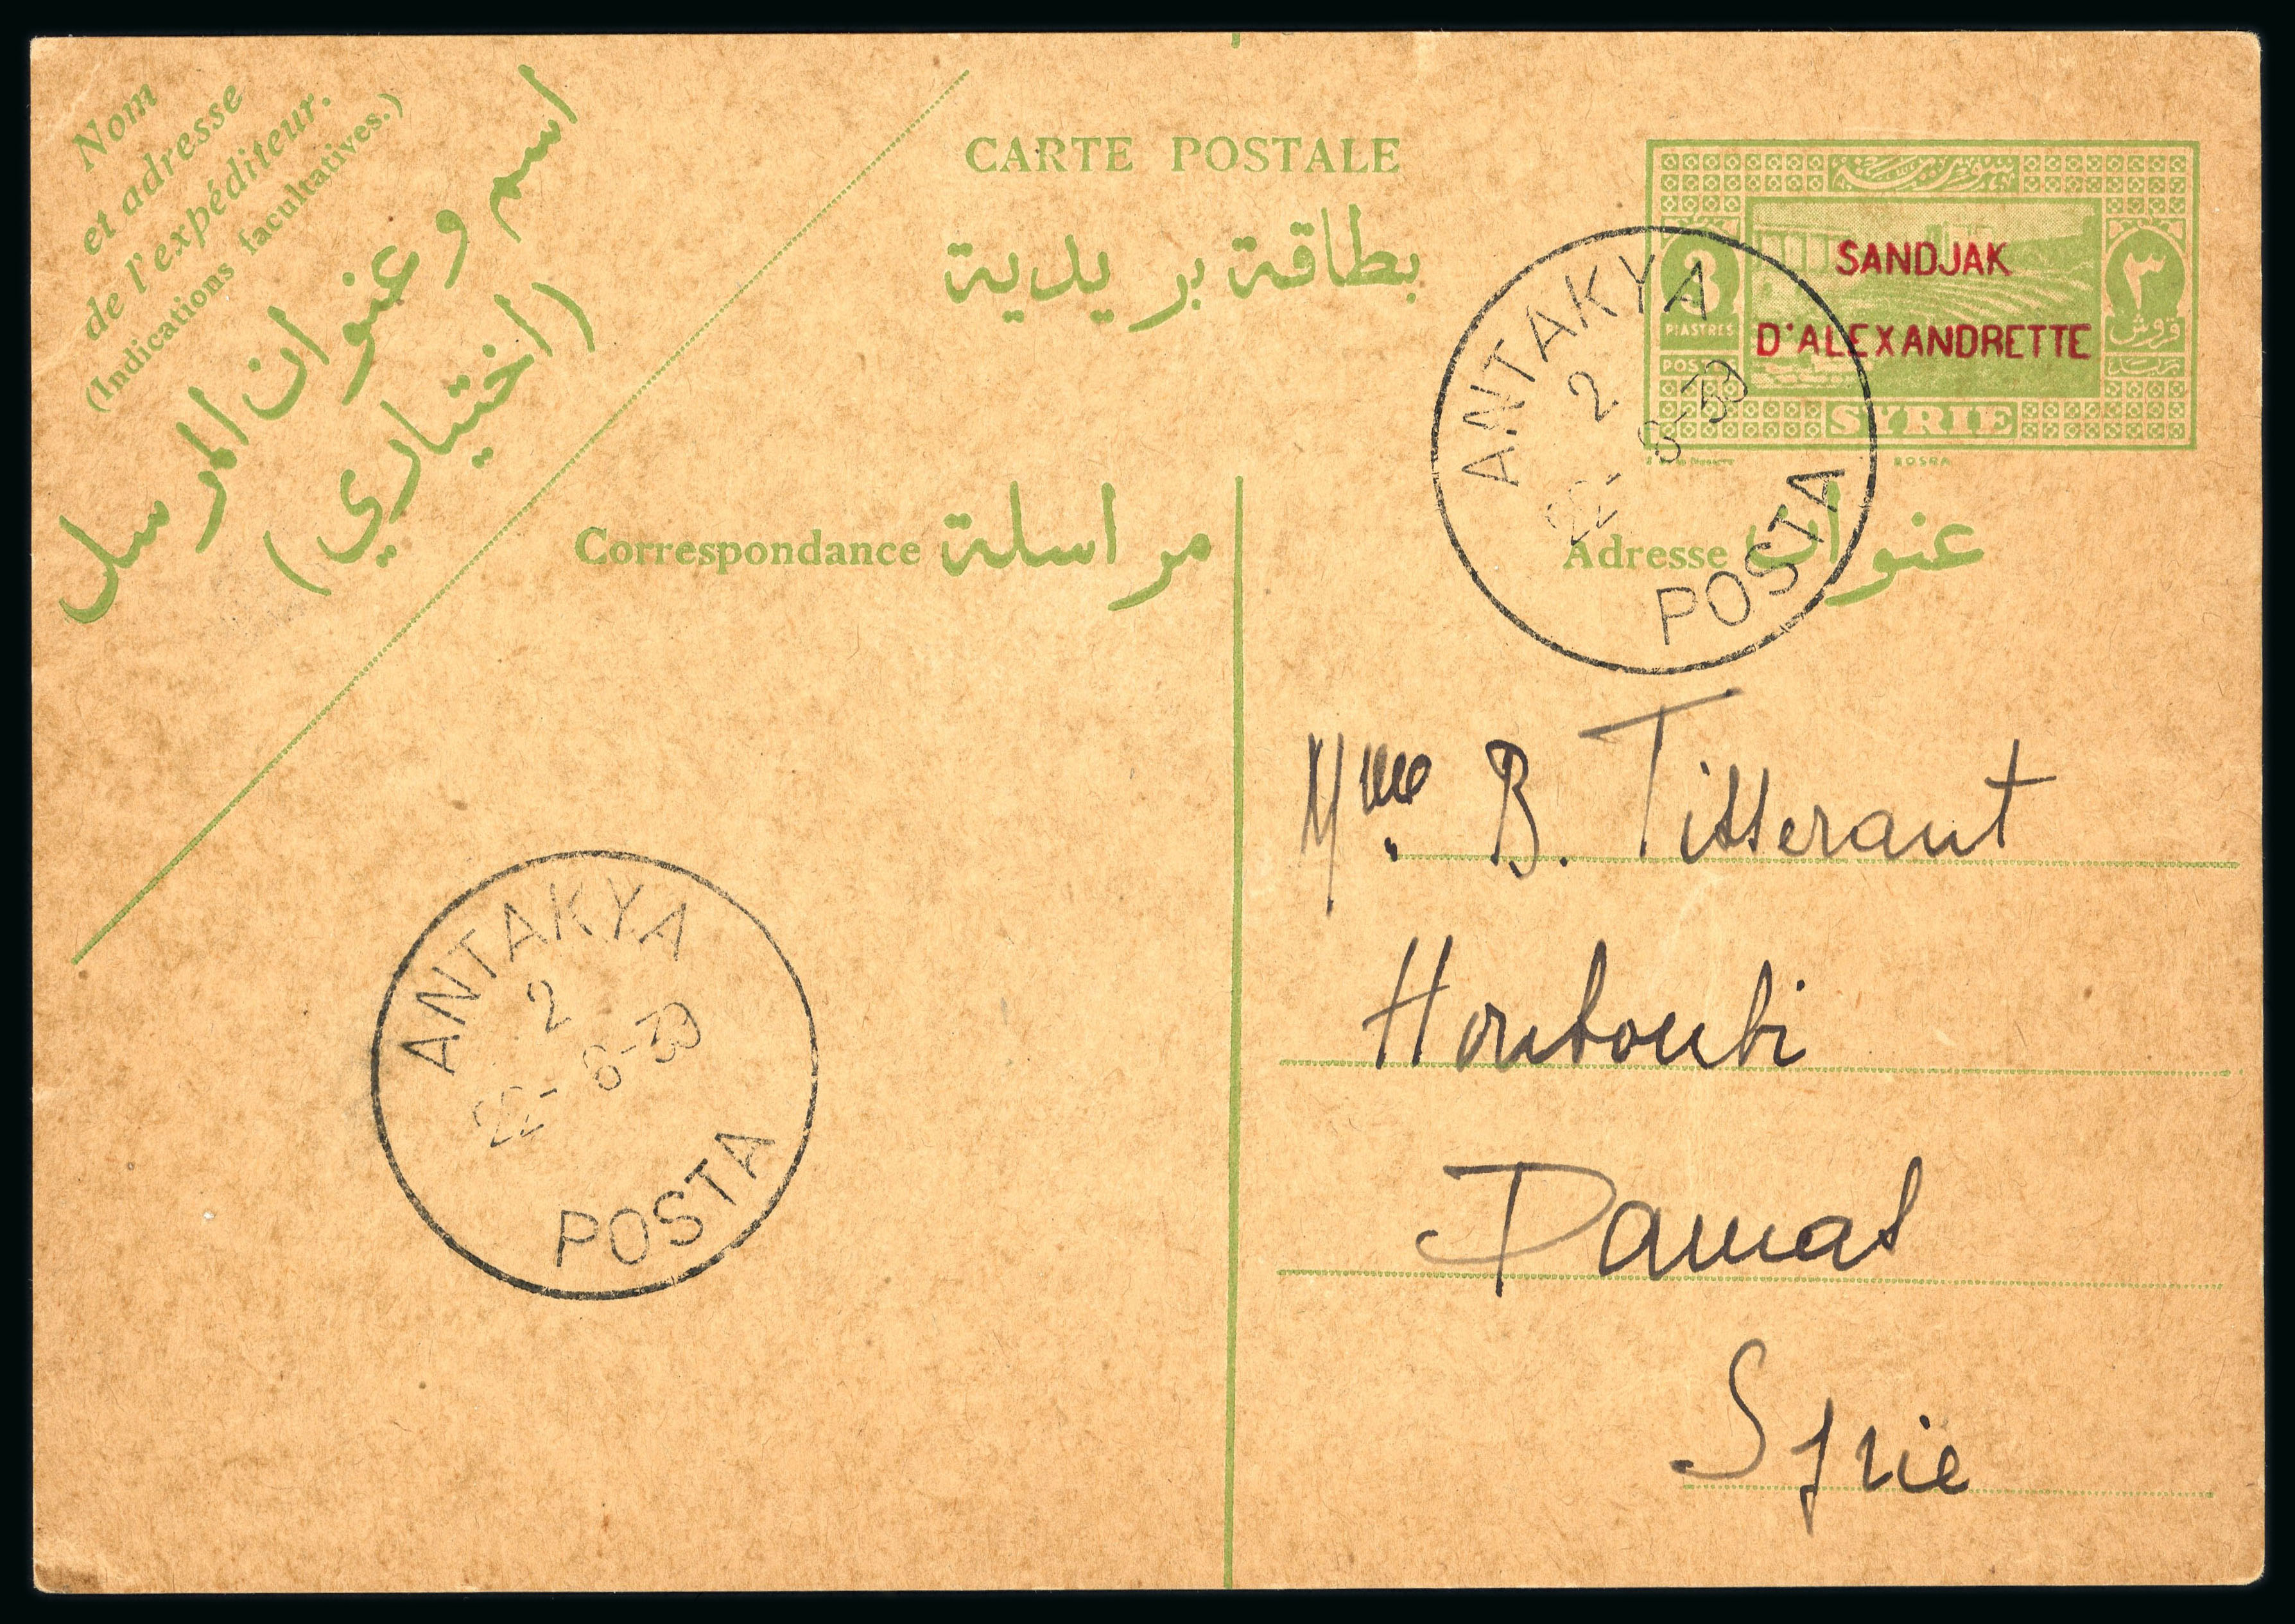 Nom
et adresse
de l'expéditeur.
(Indications facultatives.)
اسم وعنوان المرسل
(اختياري)
CARTE POSTALE
بطاقة بريدية
SANDJAK
D'ALEXANDRETTE
3
PIASTRES
POSTES
٣
قروش
بريد
SYRIE
BOSRA
ANTAKYA
2
22-6-39
POSTA
Correspondance مراسلة
Adresse عنوان
Mme. B. Tisserant
Houboubi
Damas
Syrie
ANTAKYA
2
22-6-39
POSTA